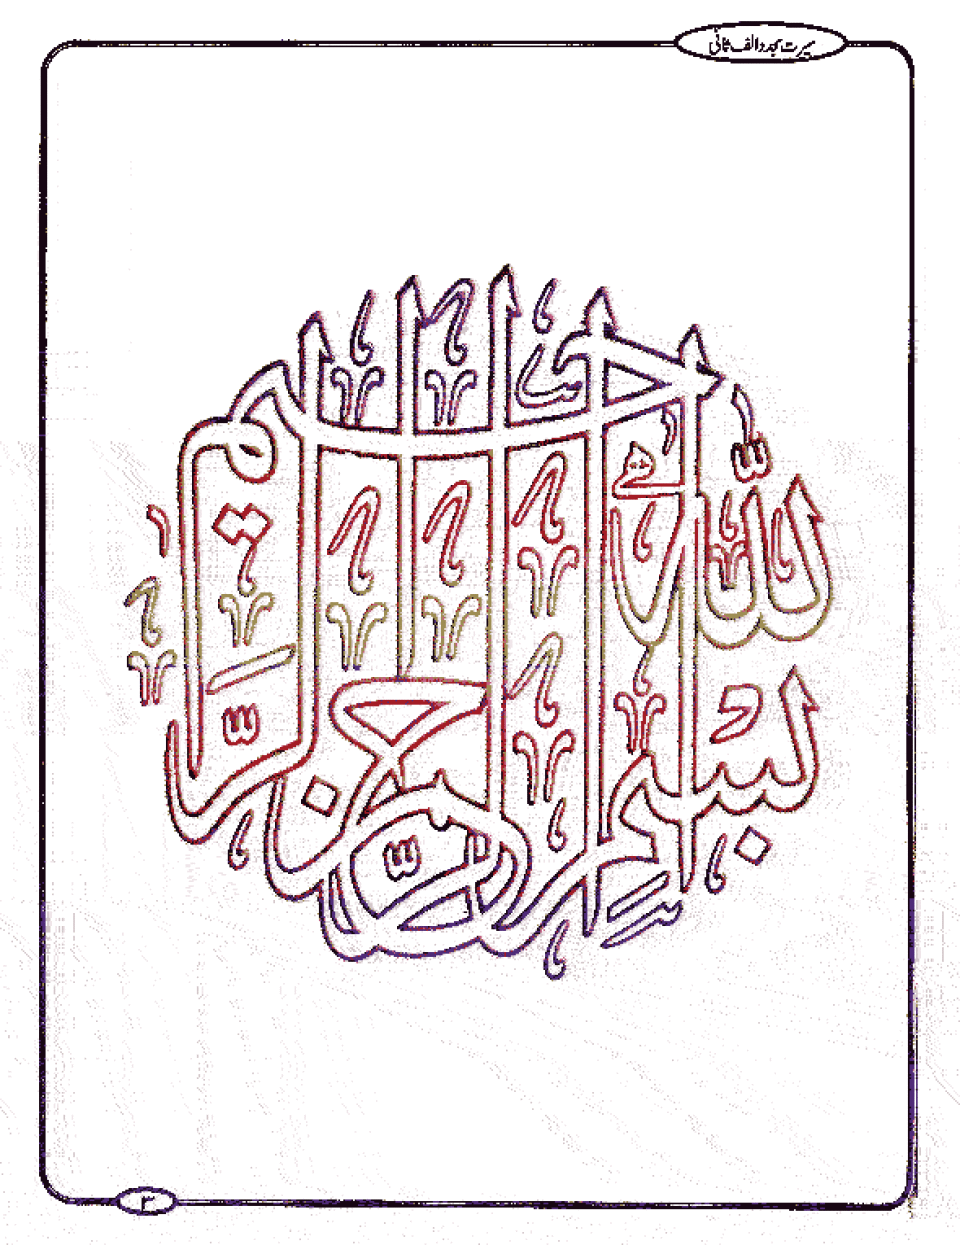 سیرت مجدد الف ثانی
بسم الله الرحمن الرحيم
۳